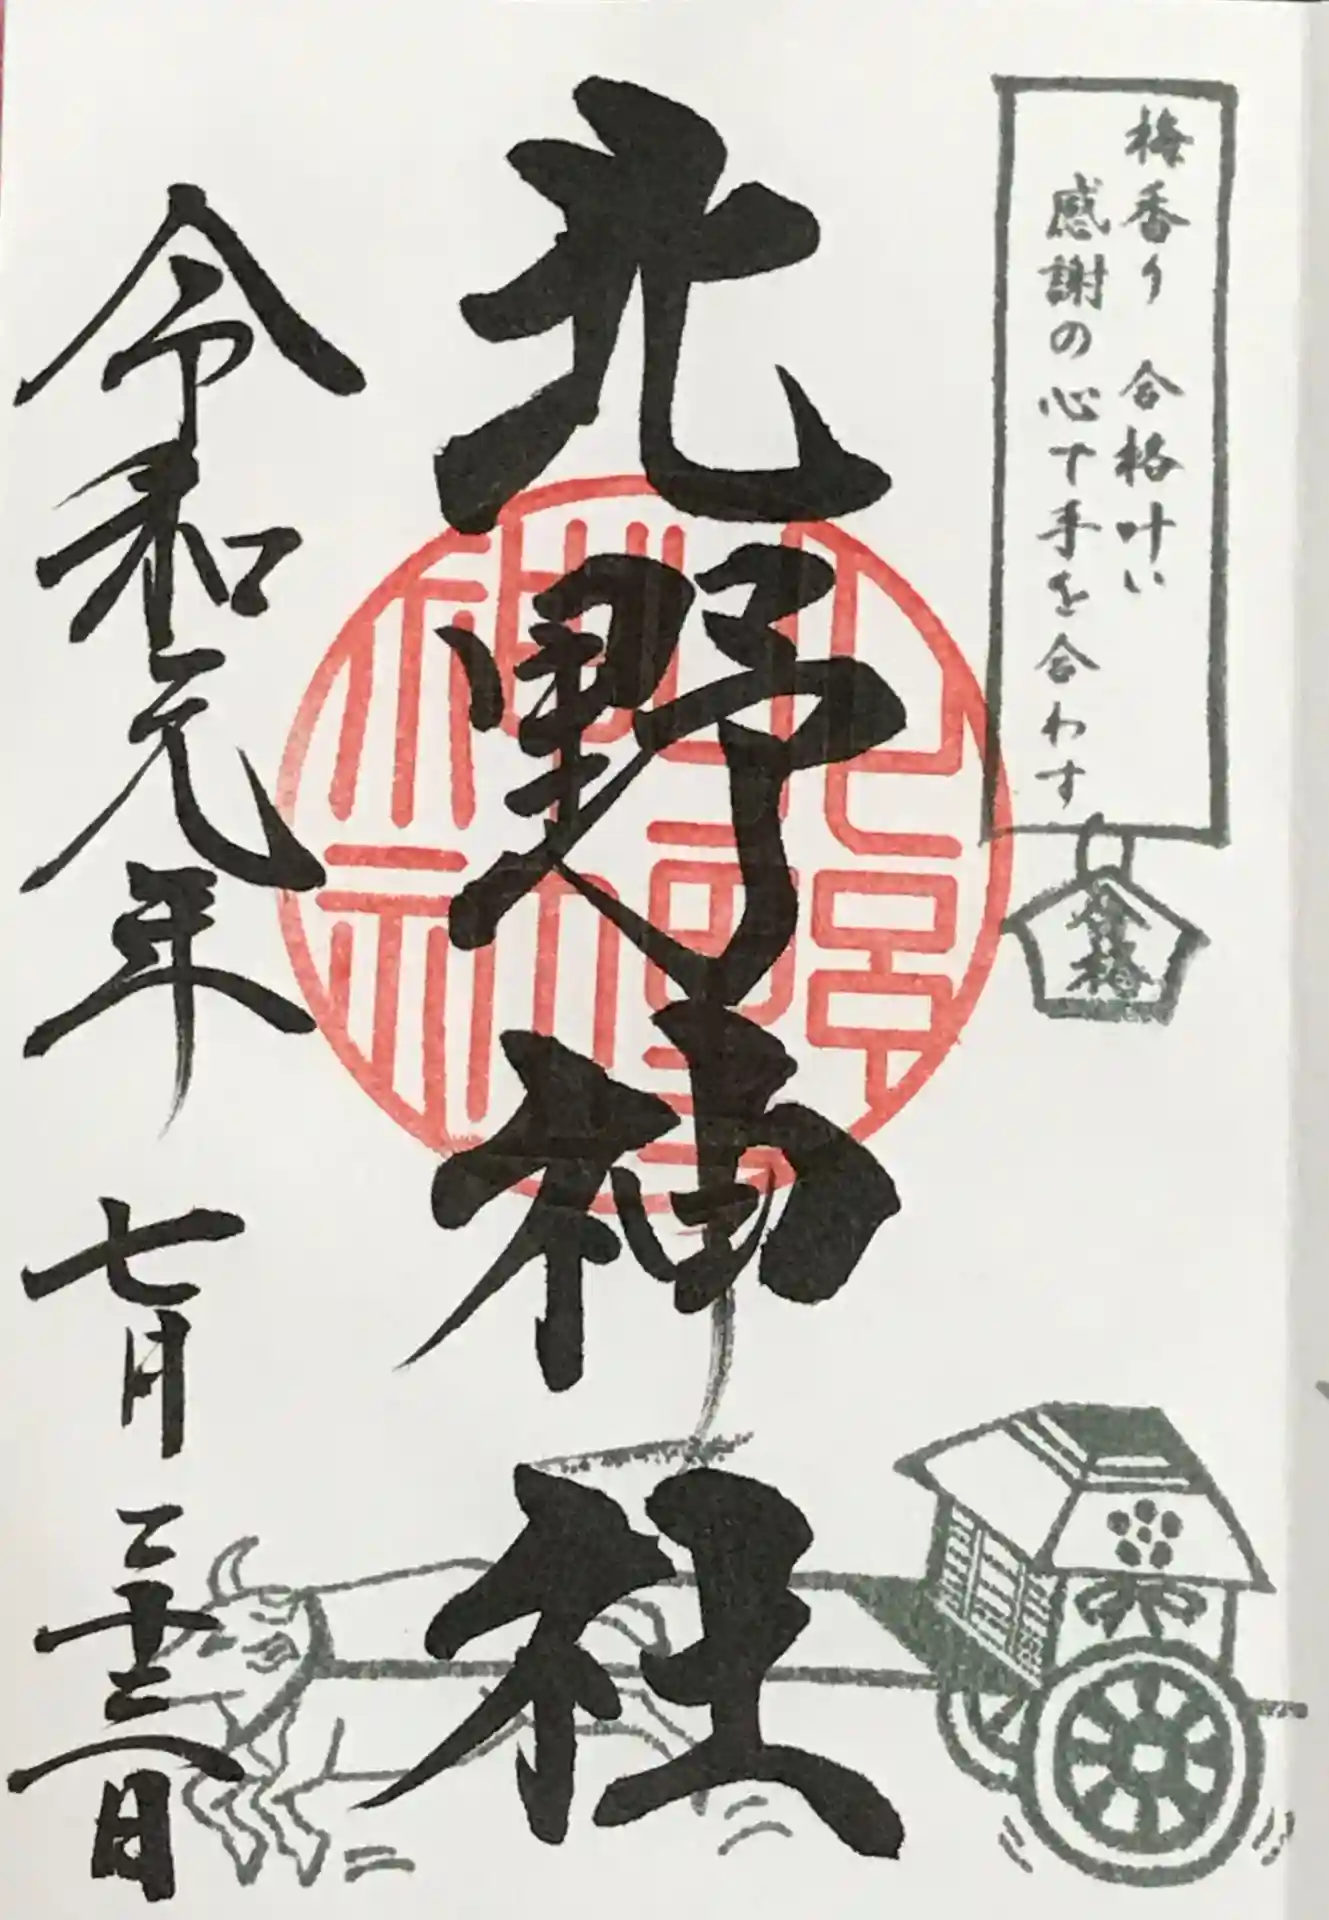 梅香り 合格叶い
感謝の心で手を合わす
合格
北野神社
令和元年 七月 二十三日